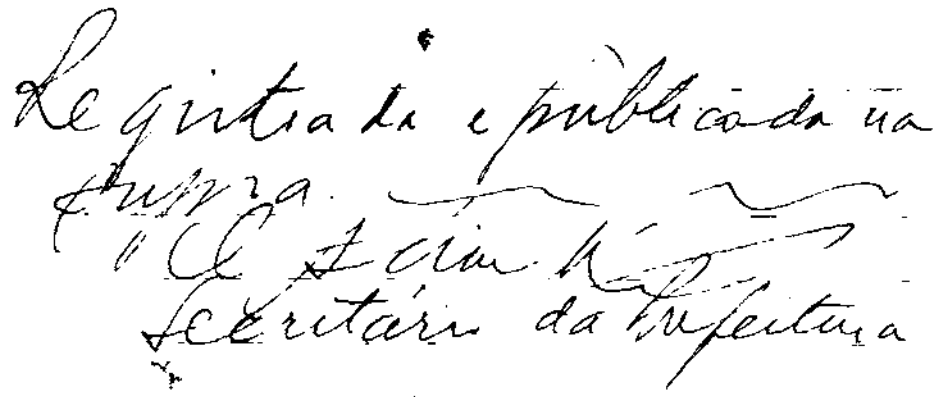 Registrada e públicada na
supra.
Secretário da Prefeitura